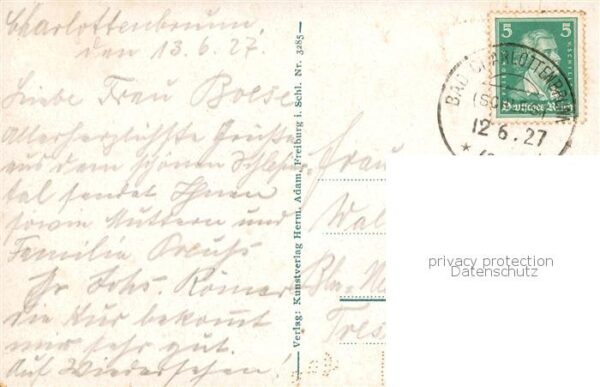 Charlottenbrunn,
den 13.6.27.
Liebe Frau Boese
Allerherzlichste Grüße
aus dem schönen Schlesier-
tal sendet Ihnen
sowie Muttern und
Familie
Ihr Römer
die Kur bekommt
mir sehr gut.
Auf Wiedersehen!
Verlag: Kunstverlag Herm. Adam, Freiburg i. Schl. Nr. 3285
Frau
5 5
Deutsches Reich
BAD CHARLOTTENBRUNN
12 6.27
privacy protection
Datenschutz